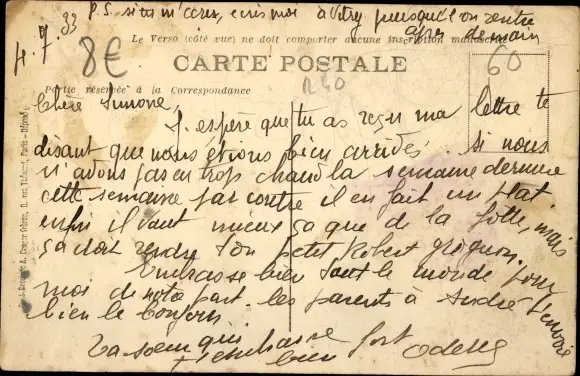 P.S. si tu m'écris, écris moi à Vitry puisqu'on rentre
après demain
4.7 33
8€
60
Le Verso (côté vue) ne doit comporter aucune inscription manuscrite
CARTE POSTALE
Partie réservée à la Correspondance
Chère Simone,
J'espère que tu as reçu ma lettre te
disant que nous étions bien arrivés. si nous
n'avons pas eu trop chaud la semaine dernière
cette semaine par contre il en fait un plat
enfin il vaut mieux ça que de la flotte, mais
ça doit rendre ton petit Robert grognon.
Embrasse bien tout le monde pour
moi de notre part. les parents à André
bien le bonjour
Ta soeur qui
t'embrasse fort
bien Odette